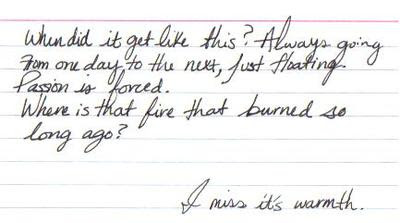 When did it get like this? Always going
from one day to the next, just floating.
Passion is forced.
Where is that fire that burned so
long ago?
I miss it's warmth.